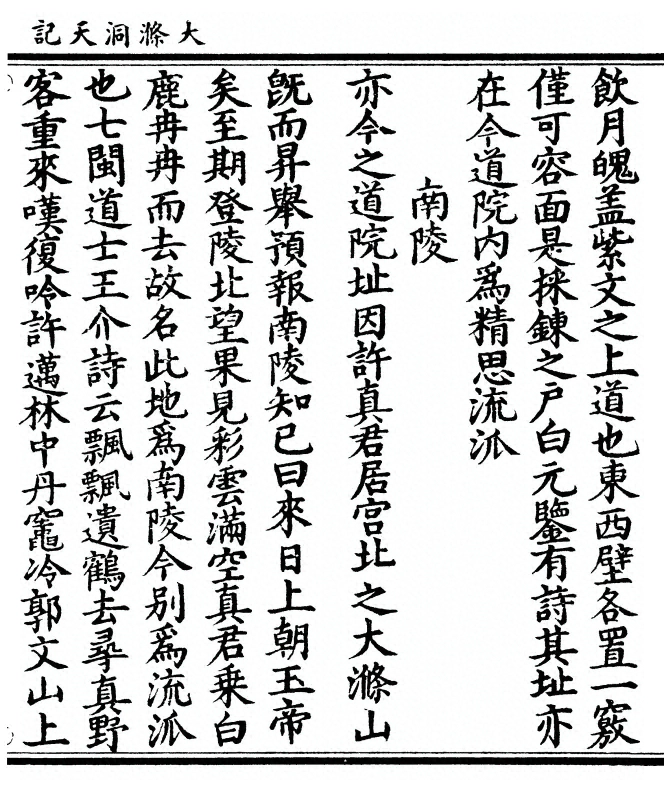 大滌洞天記
飲月魄盖紫文之上道也東西壁各置一竅
僅可容面是採鍊之戶白元鑒有詩其址亦
在今道院内爲精思流泒
南陵
亦今之道院址因許真君居宫北之大滌山
旣而昇舉預報南陵知已曰來日上朝玉帝
矣至期登陵北望果見彩雲滿空真君乗白
鹿冉冉而去故名此地爲南陵今别爲流泒
也七閩道士王介詩云飄飄遺鶴去尋真野
客重來嘆復吟許邁林中丹竈冷郭文山上